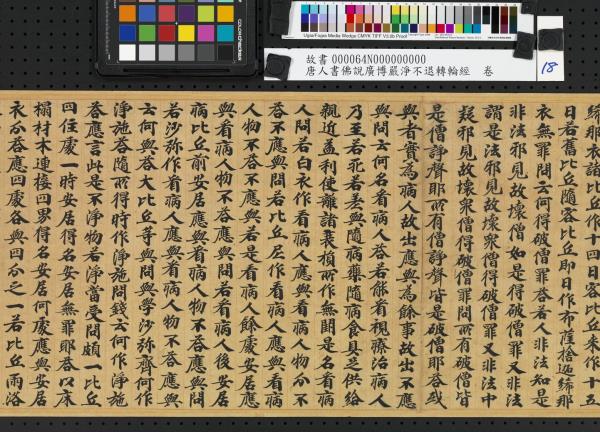 UgraFogra Media Wedge CMYK TIFF V3.0b Proof
故書 000064N000000000
唐人書佛說廣博嚴淨不退轉輪經 卷
18
締那衣比丘作十四日客比丘來作十五
日若舊比丘隨客比丘即日作布薩捨迦絺那
衣無罪問云何得破僧罪答若人非法知是
非法邪見故壞僧如是得破僧罪又非法
謂是法邪見故壞眾僧得破僧罪又非法中
疑邪見故壞眾僧得破僧罪問所有破僧皆
是僧諍聲耶所有僧諍聲皆是破僧耶答或
與者實為病人故出應與為餘事故出不應
與問云何名看病人答若能看視療治病人
乃至若死若差與隨病藥隨病食具乏供給
親近益利使離諸衰損所作無闕是名看病
人問若白衣作看病人應與看病人物不不
答不應與問若比丘尼作看病人應與看病
人物不答不應與若是看病人餘處安居應
與看病人物不答應與問若看病人後安居
病比丘前安居應與看病人物不答應與問
若沙彌作看病人應與看病人物不答應與
云何與答大比丘等與問與學沙彌齊何作
淨施答隨所得時作淨施問錢云何作淨施
答應言此是不淨物若淨當受問頗一比丘
四住處一時安居得名安居無罪耶答以床
榻材木連接四界得名安居何處應與安居
衣分答應四處各與四分之一若比丘雨浴